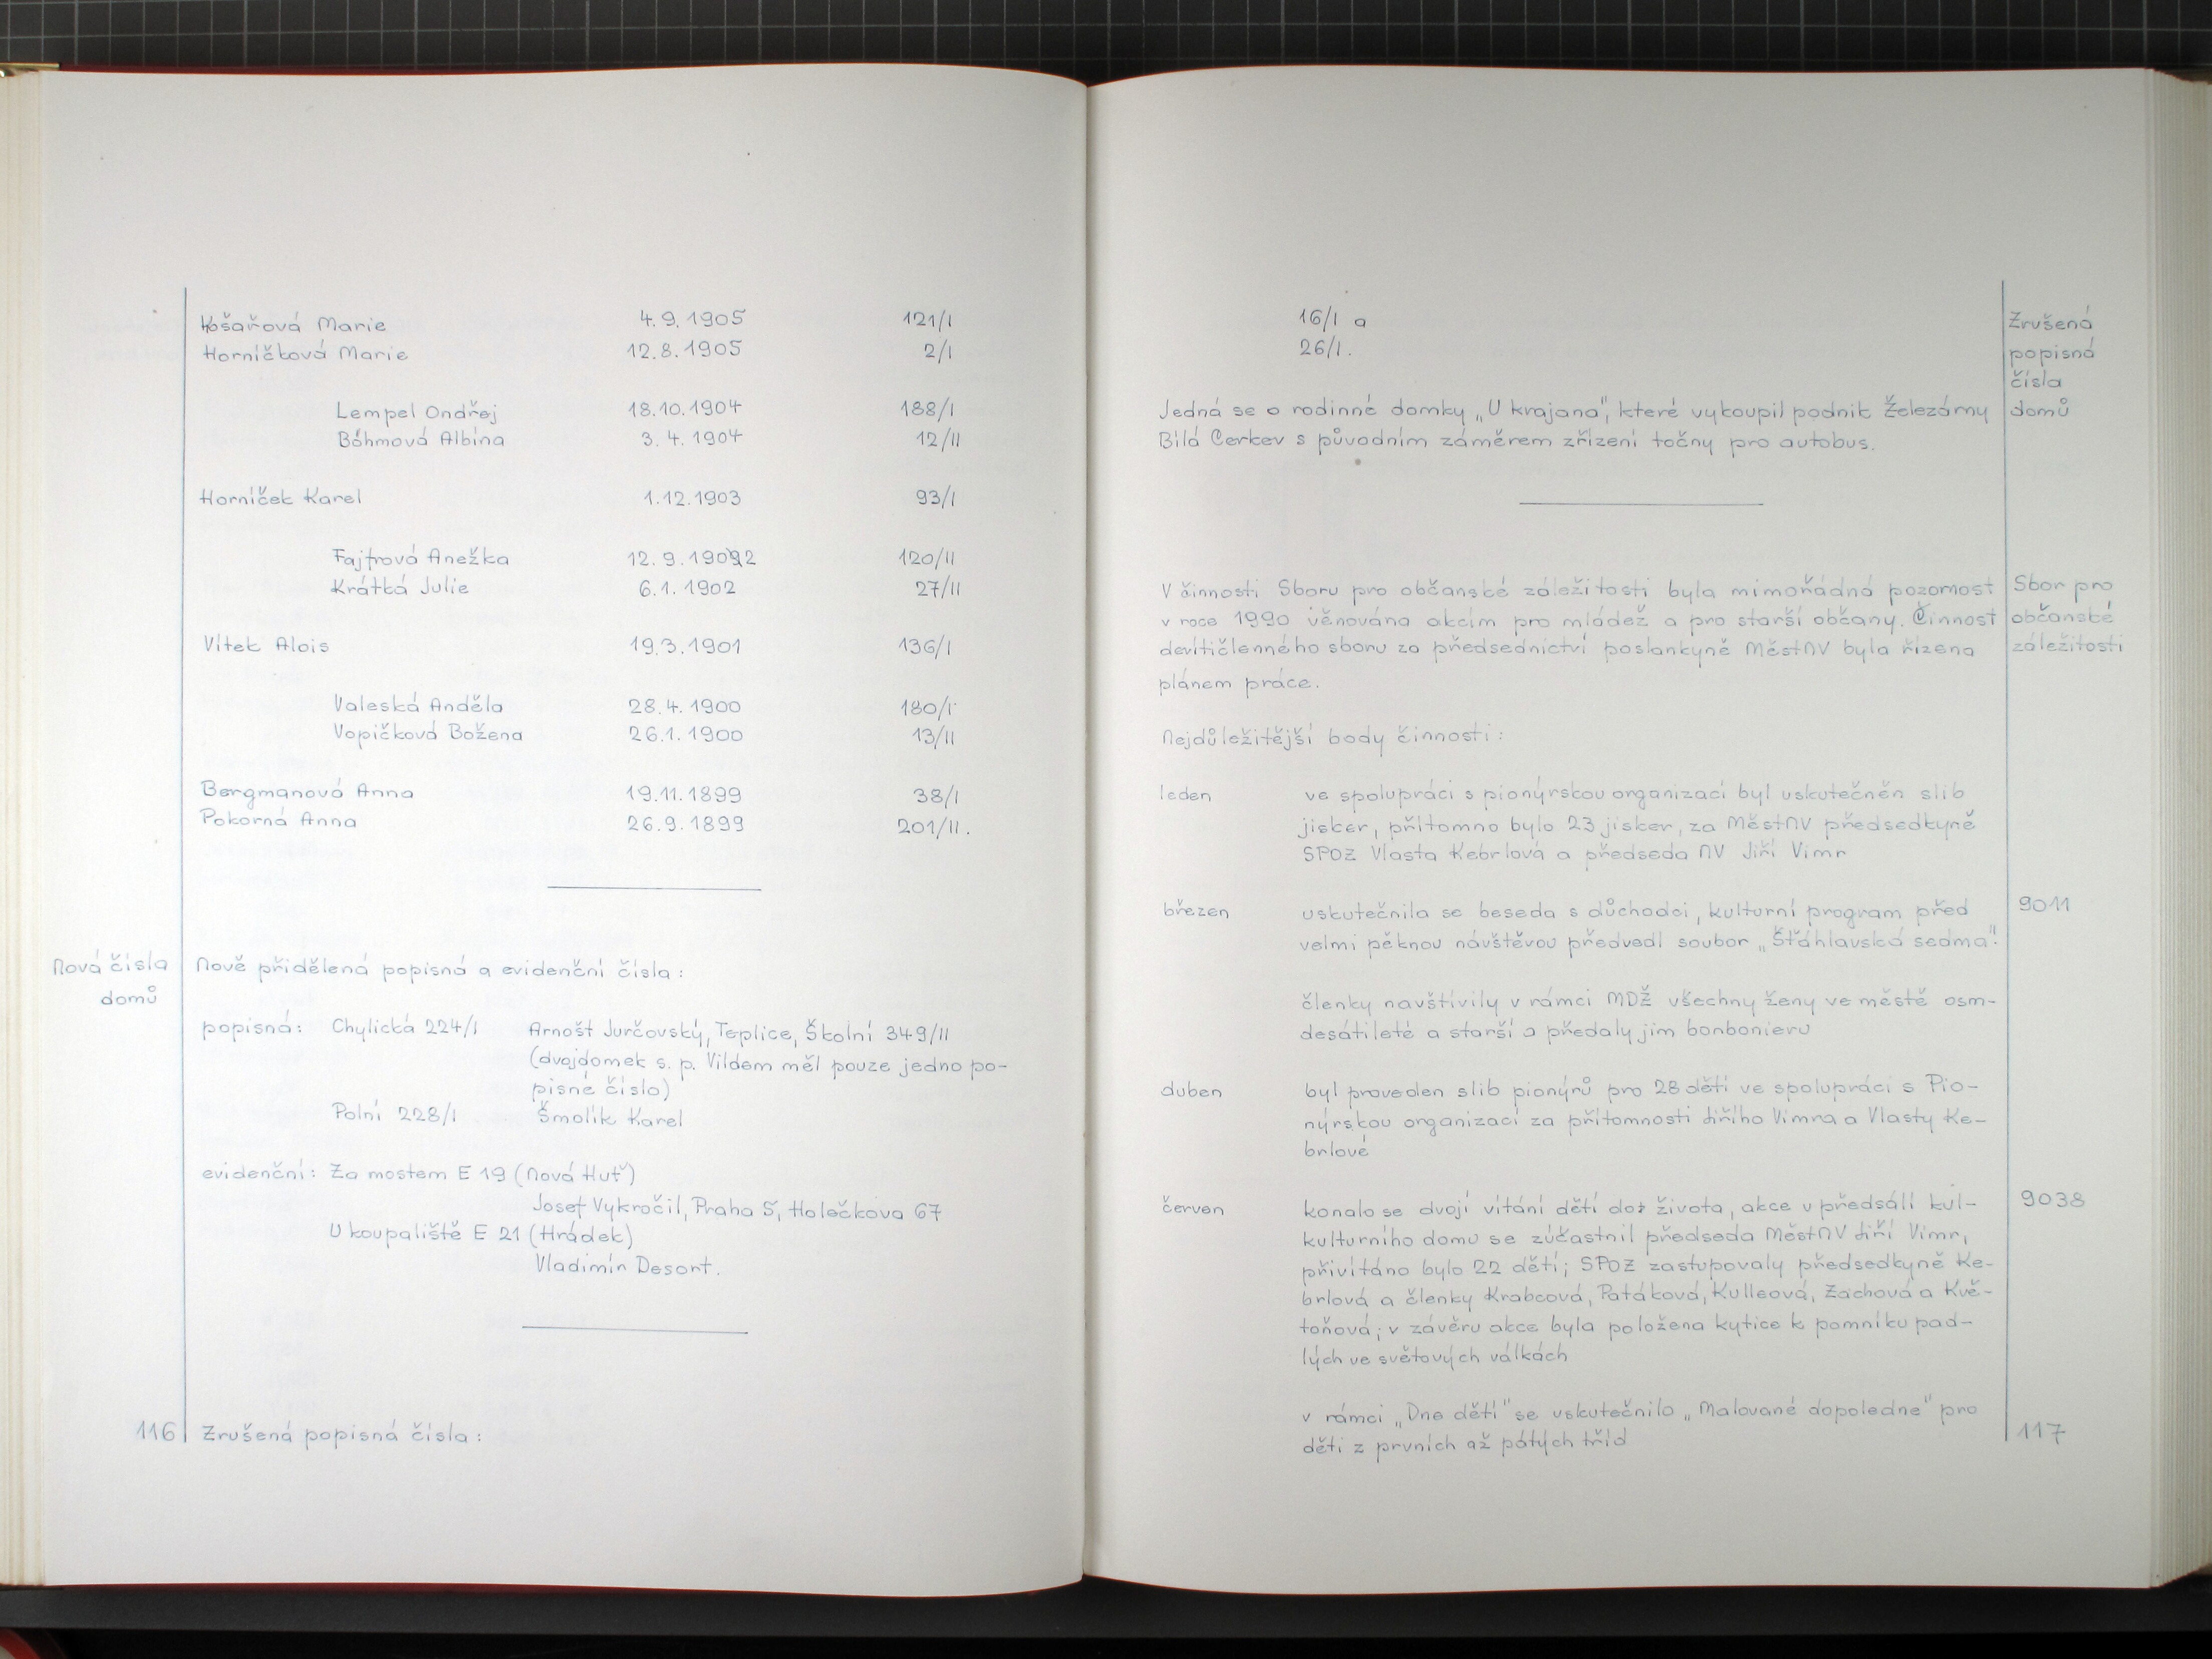 Košařová Marie 4.9.1905 121/I
Horníčková Marie 12.8.1905 2/I
Lempel Ondřej 18.10.1904 188/I
Böhmová Albína 3.4.1904 12/II
Horníček Karel 1.12.1903 93/I
Fajfrová Anežka 12.9.1902 120/II
Krátká Julie 6.1.1902 27/II
Vítek Alois 19.3.1901 136/I
Valeská Anděla 28.4.1900 180/I
Vopičková Božena 26.1.1900 13/II
Bergmanová Anna 19.11.1899 38/I
Pokorná Anna 26.9.1899 201/II.
Nová čísla
domů
Nově přidělená popisná a evidenční čísla:
popisná: Chylická 224/I Arnošt Jurčovský, Teplice, Školní 349/II
(dvojdomek s. p. Vildem měl pouze jedno po-
pisné číslo)
Polní 228/I Šmolík Karel
evidenční: Za mostem E 19 (Nová Huť)
Josef Vykročil, Praha 5, Holečkova 67
U koupaliště E 21 (Hrádek)
Vladimír Desort.
116 Zrušená popisná čísla:
16/I a
26/I.
Zrušená
popisná
čísla
domů
Jedná se o rodinné domky „U krajana", které vykoupil podnik Železárny
Bílá Cerkev s původním záměrem zřízení točny pro autobus.
Sbor pro
občanské
záležitosti
V činnosti Sboru pro občanské záležitosti byla mimořádná pozornost
v roce 1990 věnována akcím pro mládež a pro starší občany. Činnost
devítičlenného sboru za předsednictví poslankyně MěstNV byla řízena
plánem práce.
Nejdůležitější body činnosti:
leden ve spolupráci s pionýrskou organizací byl uskutečněn slib
jisker, přítomno bylo 23 jisker, za MěstNV předsedkyně
SPOZ Vlasta Kebrlová a předseda NV Jiří Vimr
březen uskutečnila se beseda s důchodci, kulturní program před 9011
velmi pěknou návštěvou předvedl soubor „Šťáhlavská sedma".
členky navštívily v rámci MDŽ všechny ženy ve městě osm-
desátileté a starší a předaly jim bonbonieru
duben byl proveden slib pionýrů pro 28 dětí ve spolupráci s Pio-
nýrskou organizací za přítomnosti Jiřího Vimra a Vlasty Ke-
brlové
červen konalo se dvojí vítání dětí do života, akce v předsálí kul- 9038
kulturního domu se zúčastnil předseda MěstNV Jiří Vimr,
přivítáno bylo 22 dětí; SPOZ zastupovaly předsedkyně Ke-
brlová a členky Krabcová, Patáková, Kulleová, Zachová a Kvě-
toňová; v závěru akce byla položena kytice k pomníku pad-
lých ve světových válkách
v rámci „Dne dětí" se uskutečnilo „Malované dopoledne" pro
děti z prvních až pátých tříd
117